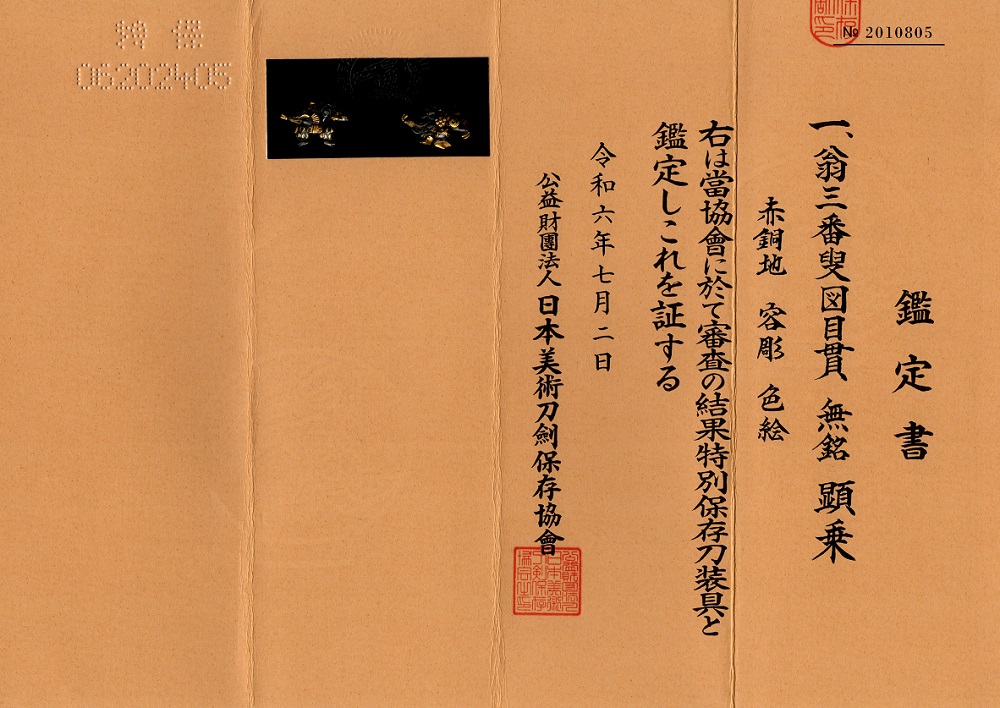 № 2010805
鑑定書
一、翁三番叟図目貫 無銘 顕乗
赤銅地 容彫 色絵
右は當協會に於て審査の結果特別保存刀装具と
鑑定しこれを証する
令和六年七月二日
公益財團法人 日本美術刀劍保存協會
特保
06202405